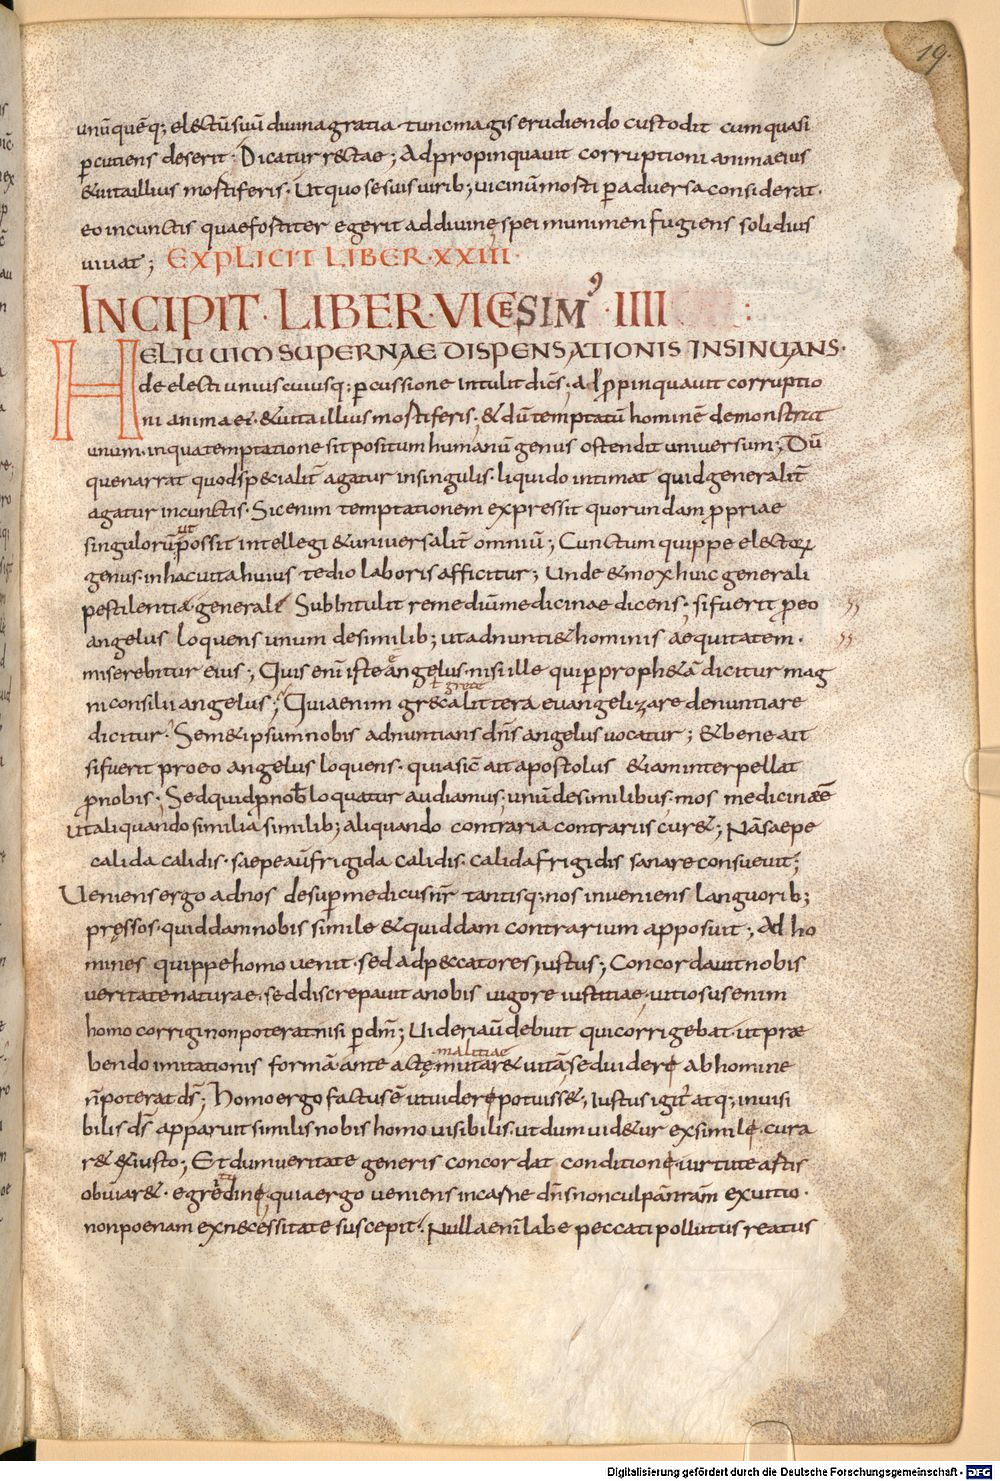 19.
unūquēq; electū suū divina gratia · tunc magis erudiendo custodit cum quasi
ꝑcutiens deserit · Dicatur rectae ; Adpropinquavit corruptioni anima eius
& vita illius mortiferis · Ut quo se suis virib; vicinū morti ꝑ adversa considerat ·
eo in cunctis quae fortiter egerit ad divinę spei munimen fugiens solidius
vivat ; EXPLICIT LIBER · XXIII ·
INCIPIT · LIBER · VICESIM᾿ · IIII :
HELIU VIM SUPERNAE DISPENSATIONIS INSINUANS ·
de electi uniuscuiusq; ꝑcussione intulit dicēs · adpropinquavit corruptio
ni anima ei᾿ · & vita illius mortiferis · & dū temptatū hominē demonstrat
unum · in qua temptatione sit positum humanū genus ostendit universum ; Dū
que narrat quod specialit̄ agatur in singulis · liquido intimat quid generalit̄
agatur in cunctis · Sic enim temptationem expressit quorundam propriae
ut
singulorū possit intellegi & universalit̄ omniū ; Cunctum quippe electoꝝ
genus · in hac vita huius tedio laboris afficitur ; Unde & mox huic generali
pestilentia · generale Subintulit remediū medicinae dicens · si fuerit pro eo
angelus loquens unum de similib; ut adnunti& hominis aequitatem ·
miserebitur eius ; Quis enī iste angelus · nisi ille qui ꝑ proph&ā dicitur mag
ni consilii angelus ; Quia enim greca littera evangelizare denuntiare
ł grece
dicitur · Sem&ipsum nobis adnuntians dn̄s angelus vocatur ; & bene ait
si fuerit pro eo angelus loquens · quia sic̄ ait apostolus &iam interpellat
pro nobis · Sed quid pro nob̄ loquatur audiamus ; unū de similibus · mos medicinae ē
ut aliquando similia similib; aliquando contraria contrariis cur& ; Nā saepe
calida calidis · saepe aū frigida calidis · calida frigidis sanare consuevit ;
Ueniens ergo ad nos desuꝑ medicus nr̄ tantisq; nos inveniens languorib;
pręssos · quiddam nobis simile & quiddam contrarium apposuit ; Ad ho
mines quippe homo venit · sed ad peccatores iustus ; Concordavit nobis
veritate naturae · sed discrepavit a nobis vigore iustitiae · vitiosus enim
homo corrigi non poterat nisi ꝑ dm̄ ; Uideri aū debuit qui corrigebat · ut prae
bendo imitationis formā · ante actę mutar& vitā sed videre ab homine
malitiae
n̄ poterat ds̄ ; Homo ergo factus ē ut videre potuiss& ; Iustus igit᾿ atq; invisi
bilis ds̄ apparuit similis nobis homo visibilis · ut dum vid&ur ex simile · cura
r& ex iusto ; Et dum veritate generis concordat conditione · virtute artis
obviar& · egredine · quia ergo veniens in carne dn̄s non culpā nr̄am ex vitio ·
non poenam ex necessitate suscepit · Nulla enī labe peccati pollutus reatus
Digitalisierung gefördert durch die Deutsche Forschungsgemeinschaft - DFG